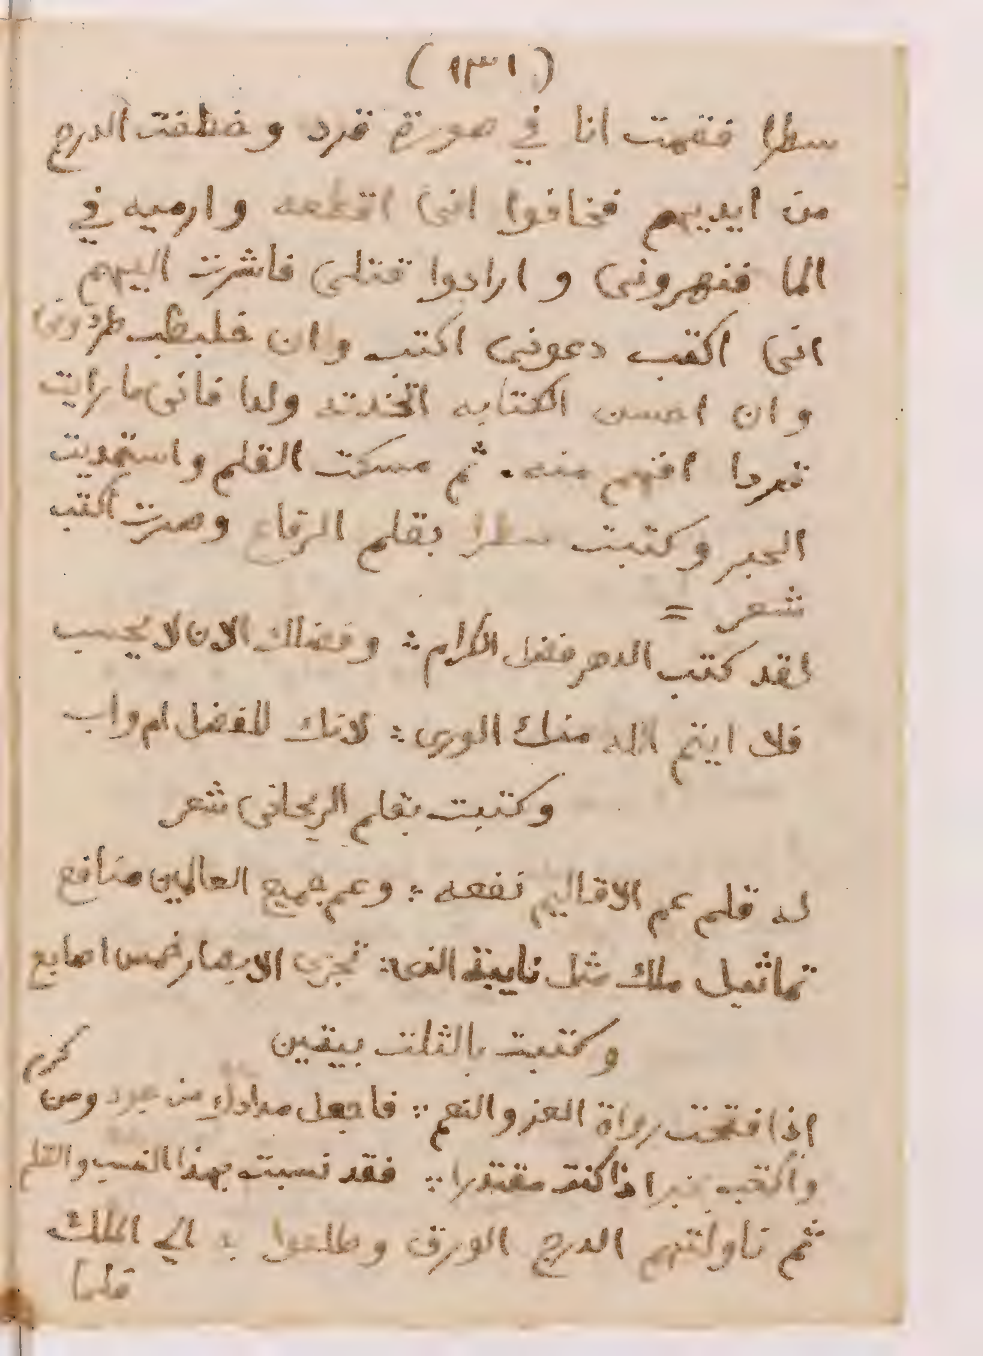 (١٣١)
سطرا فقمت انا في صورة قرد وخطفت الدرج
من ايديهم فخافوا انى اقطعه وارميه في
الما فنهرونى و ارادوا قتلى فاشرت اليهم
انى اكتب دعونى اكتب وان خلبطت طردونى
وان احسن الكتابه اتخدته ولدا فانى ما رايت
قردا افهم منه. ثم مسكت القلم واستمديت
الحبر وكتبت سطرا بقلم الرقاع وصرت اكتب
شعر =
لقد كتب الدهر فضل الكرام : وفضلك الان لا يحسب
فلا ايتم الله منك الورى : لانك للفضل ام واب
وكتبت بقلم الريحانى شعر
له قلم عم الاقاليم نفعه : وعم جميع العالمين منافع
ملك مثل الذى : الابصار خمس اصابع
وكتبت بالثلث بيقين
اذا فتحت دواة العز والنعم : فاجعل مدادك من جود ومن كرم
واكتب بخير اذا كنت مقتدرا : فقد نسبت بهذا النسب والقلم
ثم ناولتهم الدرج الورق وطلعوا به الى الملك
فلما